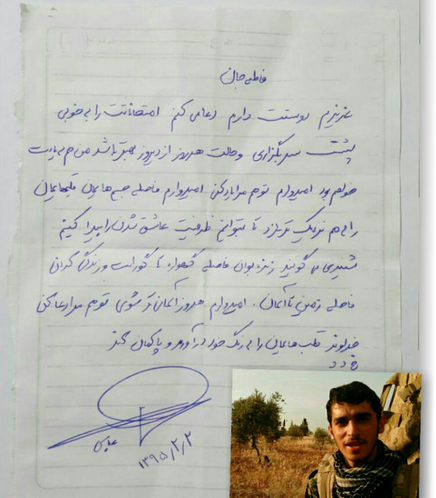 فاطمه جان
عزیزم دوستت دارم دعا می کنم امتحاناتت را به خوبی
پشت سر بگذاری و حالت هر روز از دیروز بهتر باشد من هم به یادت
خواهم بود امیدوارم تو هم مرا یاد کنی امیدوارم فاصله جسم هایمان قلبهایمان
را به هم نزدیک تر سازد تا بتوانیم ظرفیت عاشق شدن را پیدا کنیم
شهیدی می گوید زنده بودن فاصله گهواره تا گور است و زندگی کردن
فاصله زمین تا آسمان. امیدوارم هر روز آسمانی تر شوی تو هم مرا دعا کن
خداوند قلب هایمان را به رنگ خود درآورد و پاکمان کند
۱۳۹۵/۲/۲